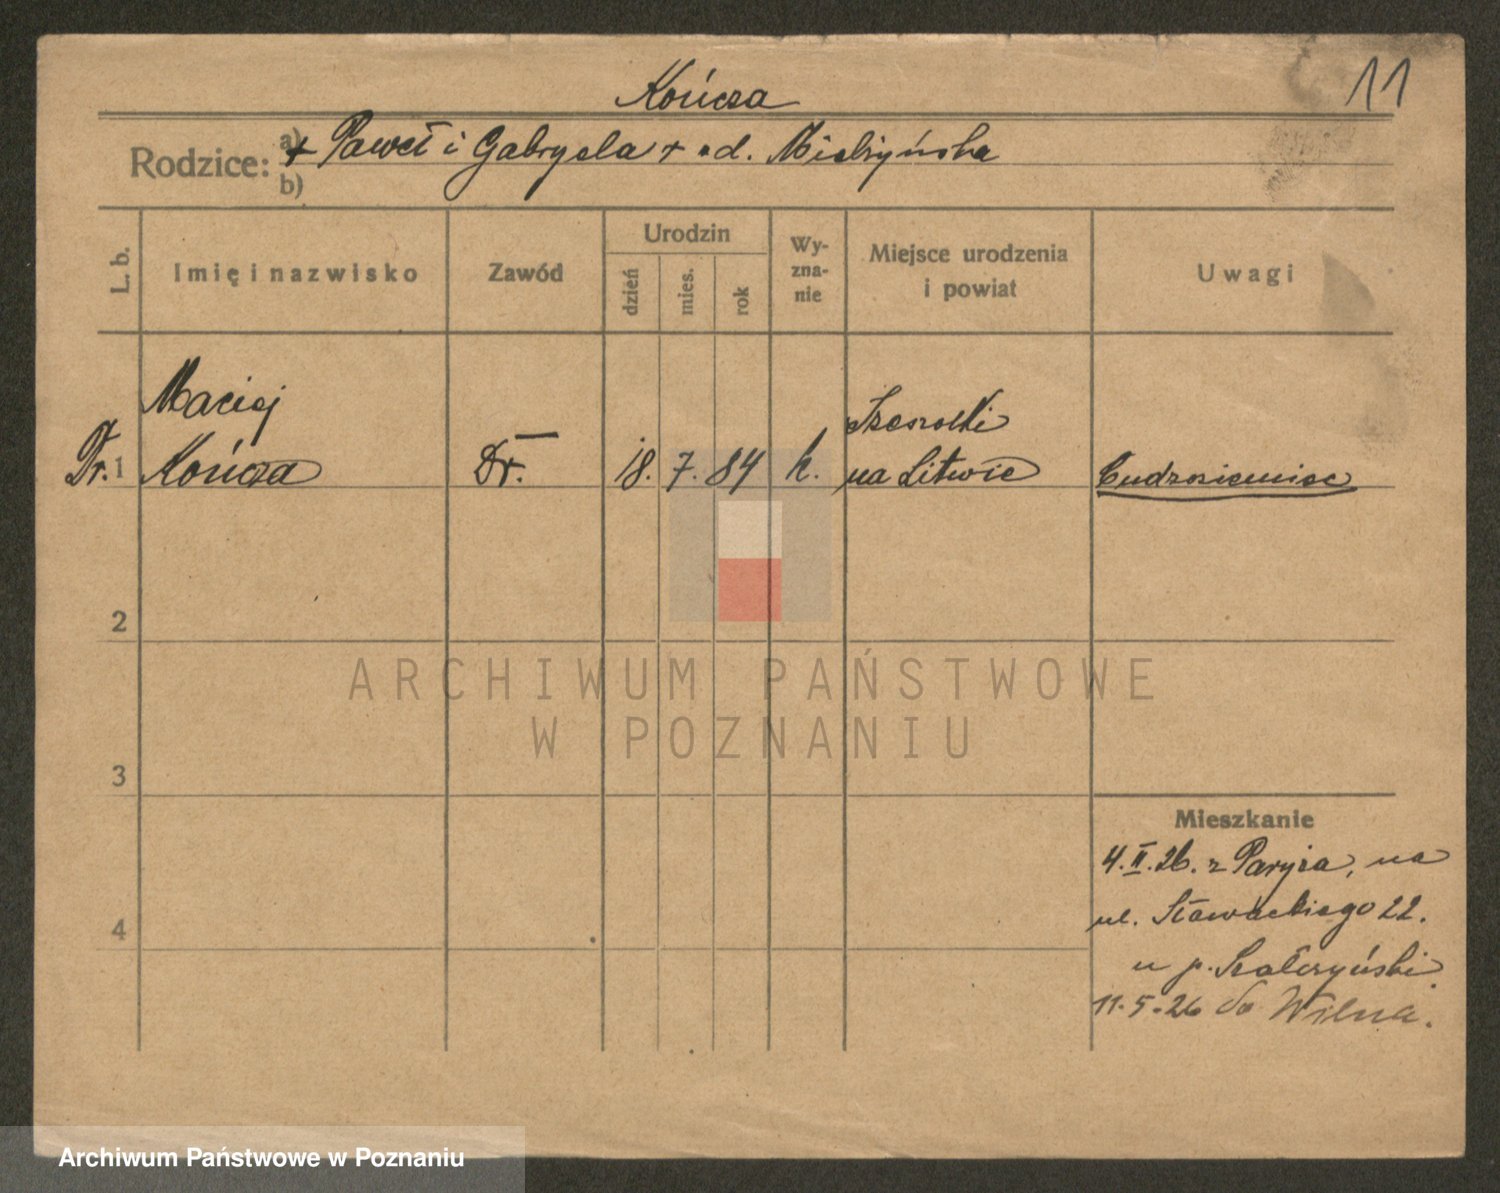 11
Kończa
Rodzice: a) + Paweł i Gabryela + od. Mielżyńska
b)
L. b.
Imię i nazwisko
Zawód
Urodzin
dzień
mies.
rok
Wy-
zna-
nie
Miejsce urodzenia
i powiat
Uwagi
Maciej
Dr. 1 Kończa Dr. 18. 7. 84 k.
na Litwie Cudzoziemiec
2
3
4
Mieszkanie
4. II. 26. z Paryża, na
ul. Słowackiego 22.
u p.
11. 5. 26 do Wilna.
ARCHIWUM PAŃSTWOWE
W POZNANIU
Archiwum Państwowe w Poznaniu